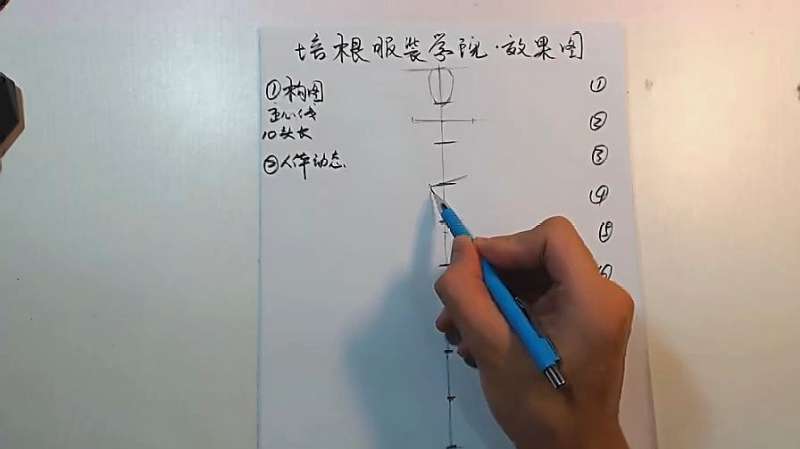 培根服装学院·效果图
①构图
重心线
10头长
②人体动态.
①
②
③
④
⑤
⑥